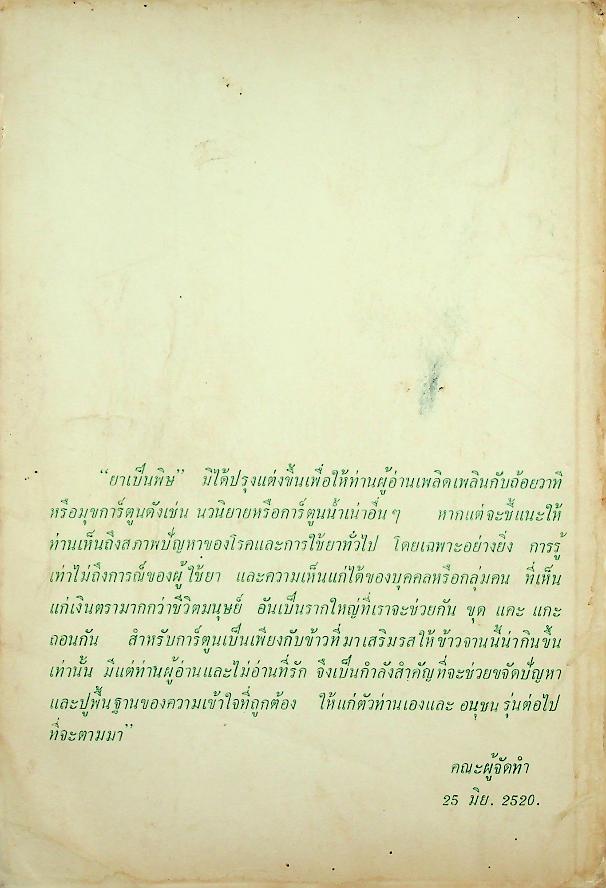 “ยาเป็นพิษ” มิได้ปรุงแต่งขึ้นเพื่อให้ท่านผู้อ่านเพลิดเพลินกับถ้อยวาที
หรือมุขการ์ตูนดังเช่น นวนิยายหรือการ์ตูนน้ำเน่าอื่น ๆ หากแต่จะชี้แนะให้
ท่านเห็นถึงสภาพปัญหาของโรคและการใช้ยาทั่วไป โดยเฉพาะอย่างยิ่ง การรู้
เท่าไม่ถึงการณ์ของผู้ใช้ยา และความเห็นแก่ได้ของบุคคลหรือกลุ่มคน ที่เห็น
แก่เงินตรามากกว่าชีวิตมนุษย์ อันเป็นรากใหญ่ที่เราจะช่วยกัน ขุด แคะ แกะ
ถอนกัน สำหรับการ์ตูนเป็นเพียงกับข้าวที่มาเสริมรสให้ข้าวจานนี้น่ากินขึ้น
เท่านั้น มีแต่ท่านผู้อ่านและไม่อ่านที่รัก จึงเป็นกำลังสำคัญที่จะช่วยขจัดปัญหา
และปูพื้นฐานของความเข้าใจที่ถูกต้อง ให้แก่ตัวท่านเองและ อนุชน รุ่นต่อไป
ที่จะตามมา”
คณะผู้จัดทำ
25 มิย. 2520.